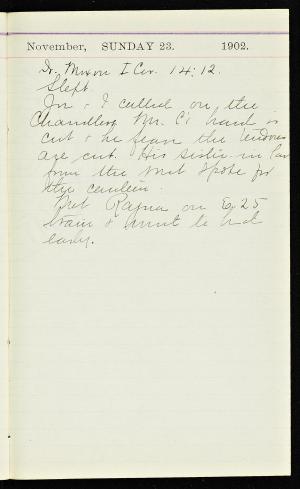 November, SUNDAY 23. 1902.
Dr. Mixon I Cor. 14:12.
Slept.
Jon & I called on the
Chandlers. Mr. C's hand is
cut & he fears the tendons
are cut. His sister-in-law
from the West spoke for
the
Met on 6.25
train & went to bed
early.